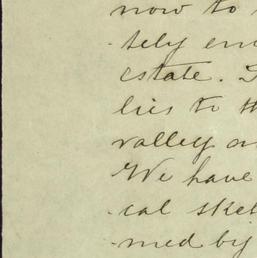 now to
-tely em
estate.
lies to th
valley an
We have
-cal sket
-med by